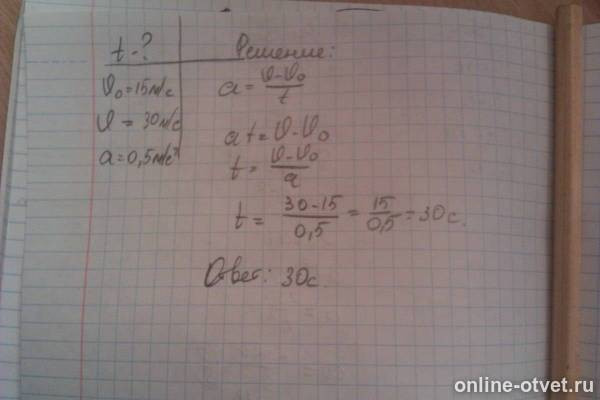 t - ?
υ₀ = 15 м/с
υ = 30 м/с
a = 0,5 м/с²
Решение:
a = (υ-υ₀)/t
at = υ-υ₀
t = (υ-υ₀)/a
t = (30-15)/0,5 = 15/0,5 = 30с.
Ответ: 30с.
online-otvet.ru